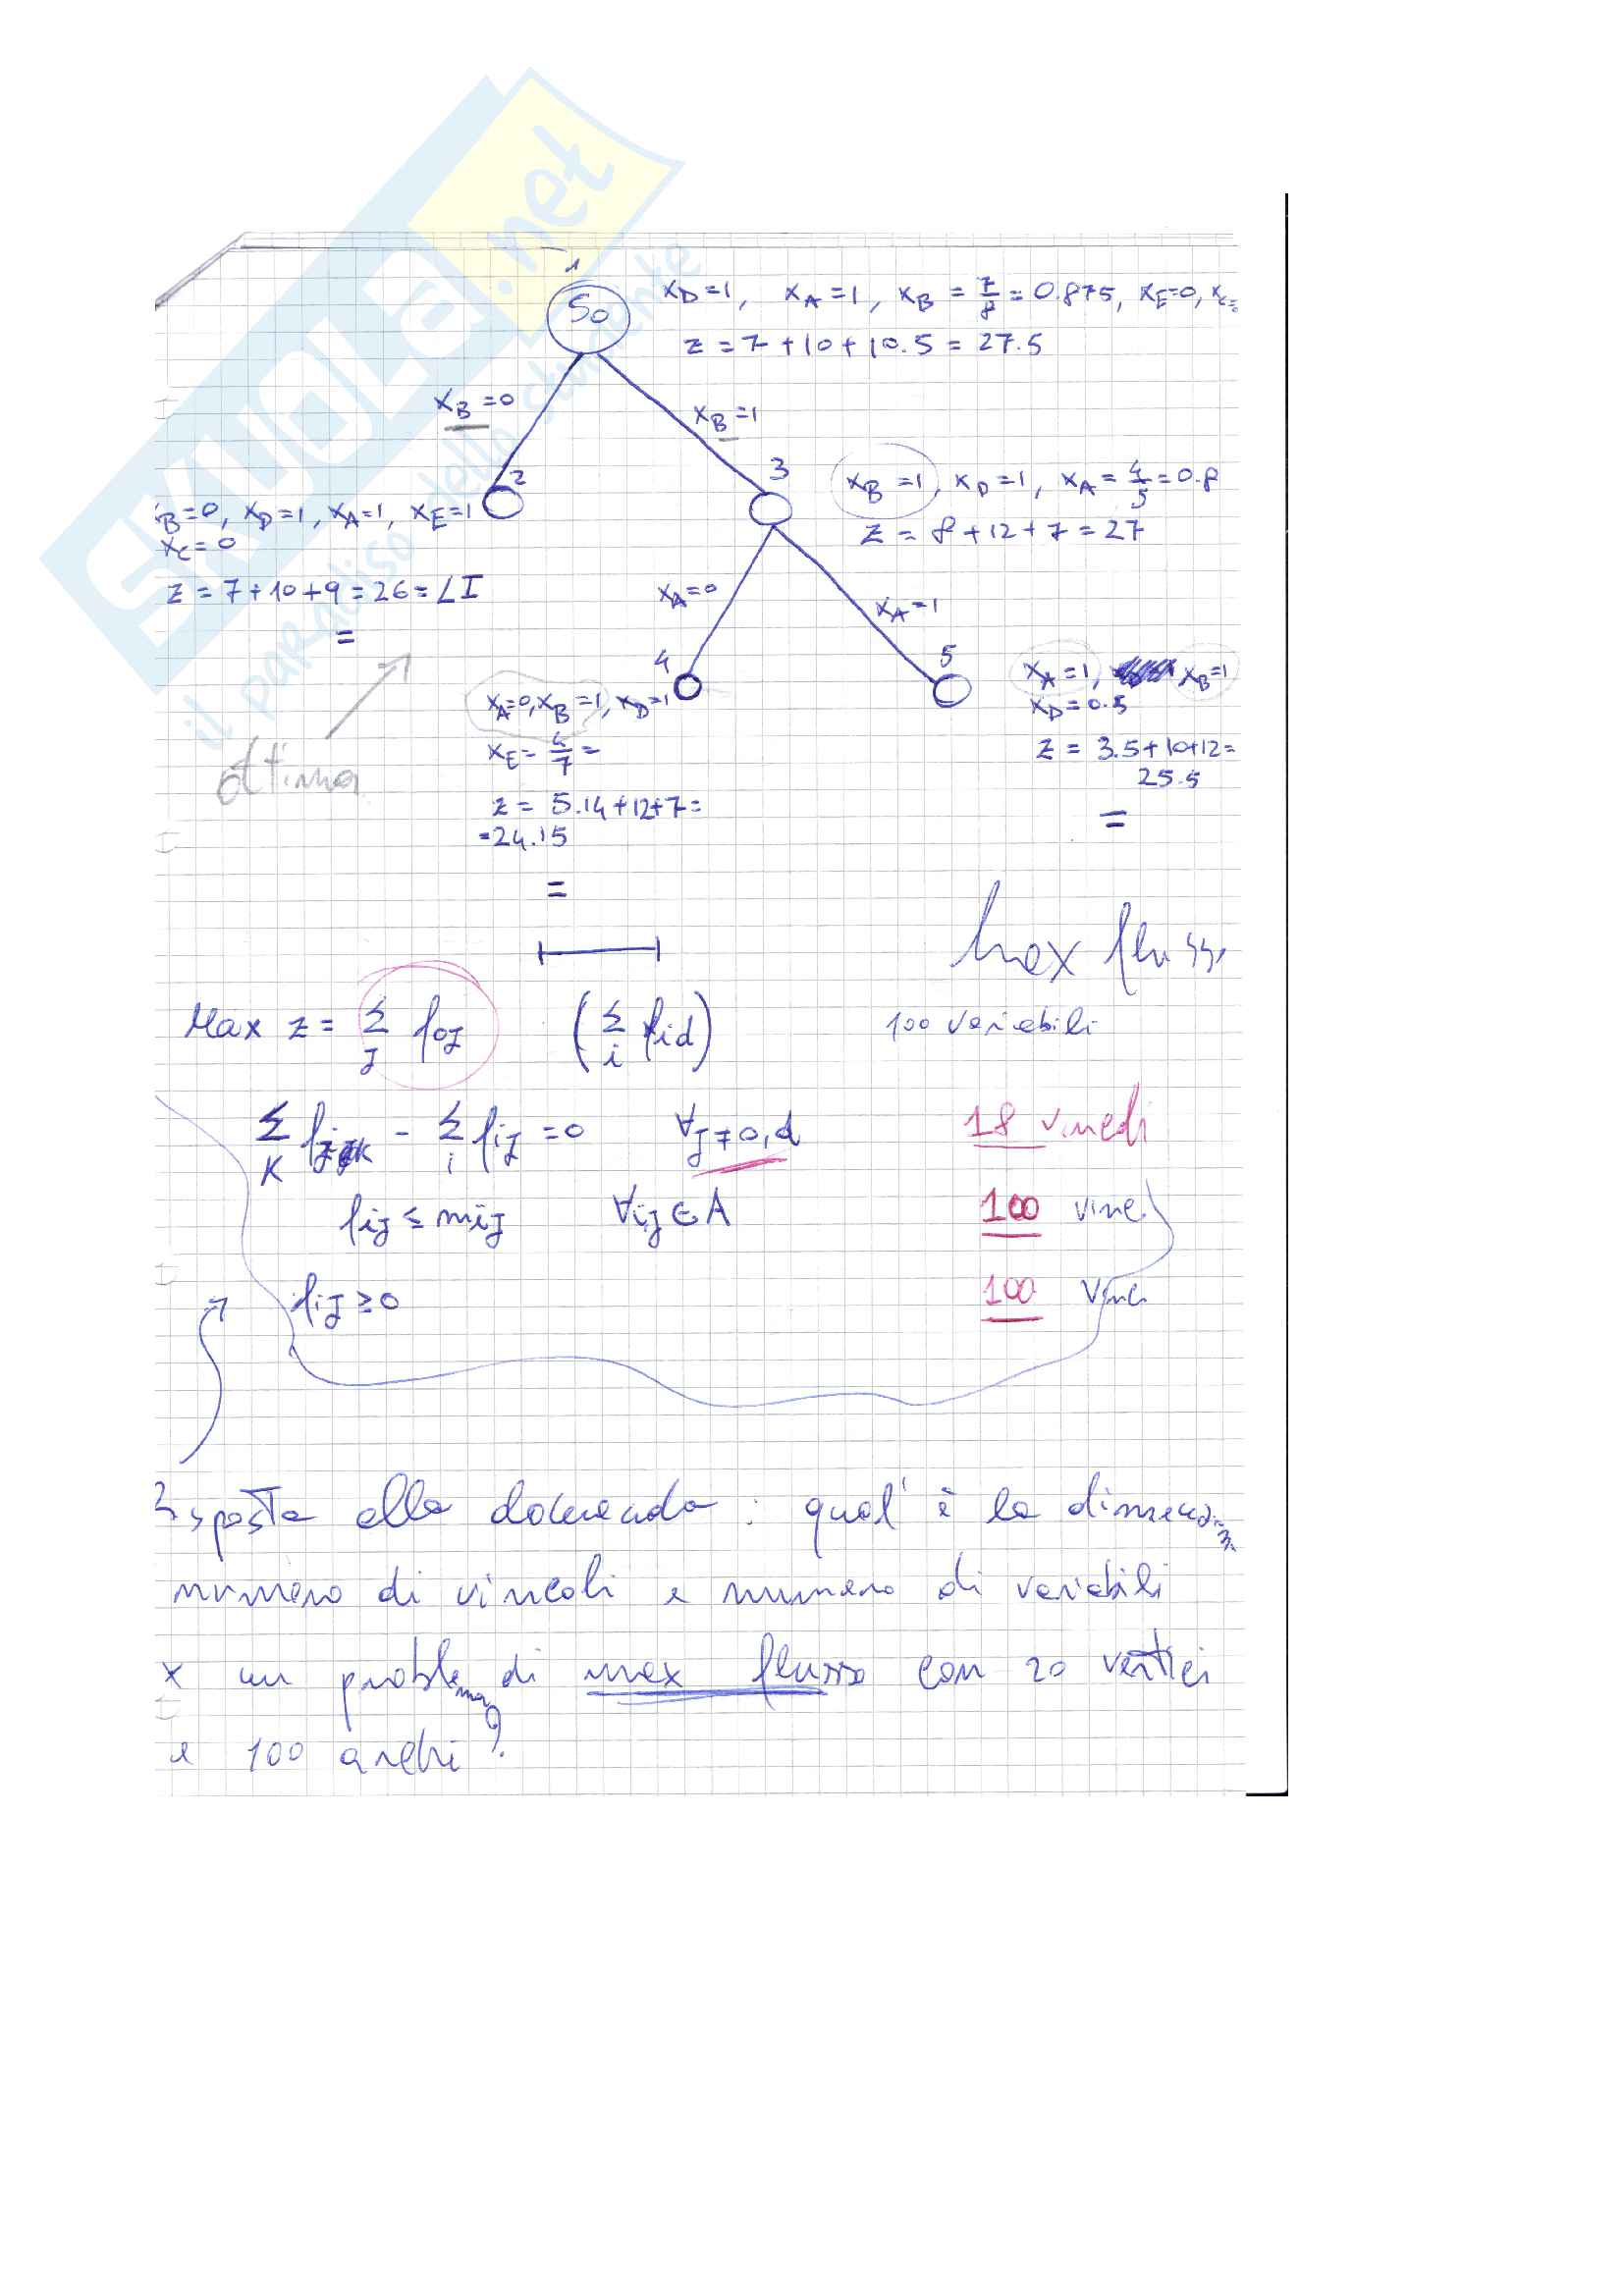 SKUOLA.net
il paradiso dello studente
1
S0
xD=1, xA=1, xB = 7/8 = 0.875, xE=0, xC=
z = 7+10+10.5 = 27.5
xB=0
xB=1
2
3
B=0, xD=1, xA=1, xE=1
xC=0
z = 7+10+9 = 26 = LI
=
xB=1, xD=1, xA = 4/5 = 0.8
z = 8+12+7 = 27
xA=0
xA=1
4
5
ottima
xA=0, xB=1, xD=1
xE = 4/7 =
z = 5.14+12+7=
=24.15
=
xA=1, xB=1
xD=0.5
z = 3.5+10+12=
25.5
=
Max flusso
Max z = Σ_J f0J (Σ_i fid)
100 variabili
Σ_K fJK - Σ_i fiJ = 0 ∀J≠0,d
18 vincoli
fiJ ≤ miJ ∀iJ ∈ A
100 vinc.
fiJ ≥ 0
100 vinc.
isposta alla domanda: qual'è la dimensione,
numero di vincoli e numero di variabili
x un problema di max flusso con 20 vertici
e 100 archi?